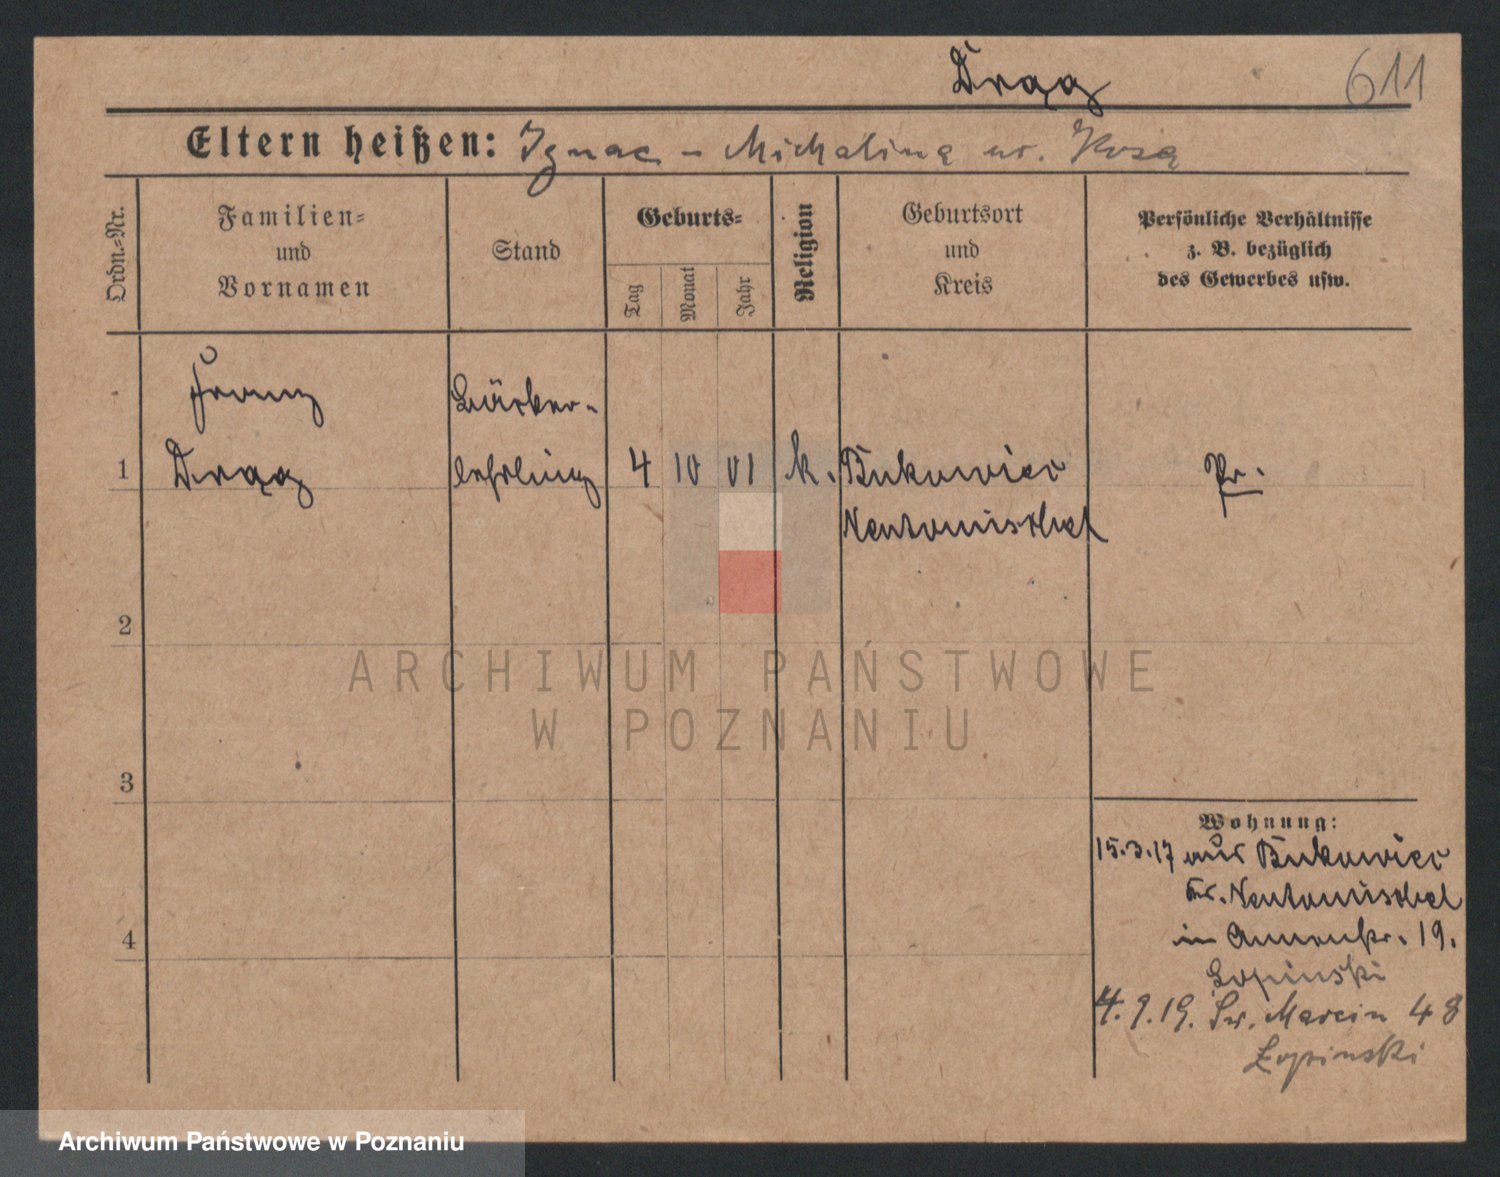 Dragg
611
Eltern heißen: Ignac - Michalina ur. Kosa
Ordn.=Nr.
Familien=
und
Vornamen
Stand
Geburts=
Tag
Monat
Jahr
Religion
Geburtsort
und
Kreis
Persönliche Verhältnisse
z. B. bezüglich
des Gewerbes usw.
Franz
Bäcker-
1
Dragg
lehrling
4
10
01
k.
Bukowiec
Pr.
Neutomischel
2
ARCHIWUM PAŃSTWOWE
W POZNANIU
3
Wohnung:
15.3.17 aus Bukowiec
Kr. Neutomischel
in Annenstr. 19.
4
Lopinski
4.9.19. Św. Marcin 48
Łopinski
Archiwum Państwowe w Poznaniu